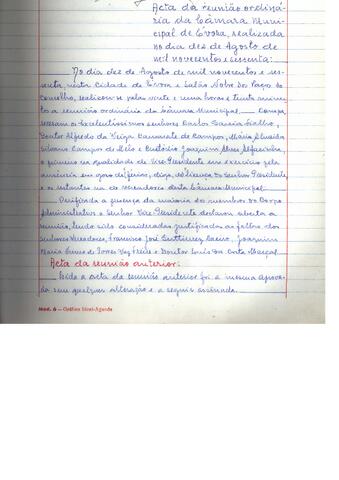 Acta da reunião ordiná-
ria da Câmara Muni-
cipal de Evora, realizada
no dia dez de Agosto de
mil novecentos e sessenta:
No dia dez de Agosto de mil novecentos e ses-
senta, nesta Cidade de Evora e Salão Nobre dos Paços do
Concelho, realizou-se pelas vinte e uma horas e trinta minu-
tos a reunião ordinária da Câmara Municipal. — Compa-
receram os Excelentíssimos senhores Carlos Garcia Fialho,
Doutor Alfredo da Veiga Canavate de Campos, Mário Almeida
Silvano Campos de Melo e Eustórdio Joaquim Alves
o primeiro na qualidade de Vice-Presidente em exercício pela
ausência em gozo de férias, digo, de licença do Senhor Presidente
e os restantes na de vereadores desta Câmara Municipal.
Verificada a presença da maioria dos membros do Corpo
Administrativo o Senhor Vice-Presidente declarou aberta a
reunião, tendo sido consideradas justificadas as faltas dos
senhores Vereadores, Francisco José Caeiro, Joaquim
Maria de Torres Vaz Freire e Doutor Luis da Costa Marçal.
Acta da reunião anterior:
Lida a acta da reunião anterior foi a mesma aprova-
da sem qualquer alteração e a seguir assinada.
Mod. 6 — Gráfica Ideal-Agueda